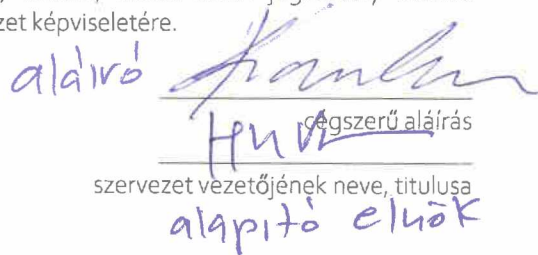 zet képviseletére.
aláiró
cégszerű aláírás
szervezet vezetőjének neve, titulusa
alapító elnök